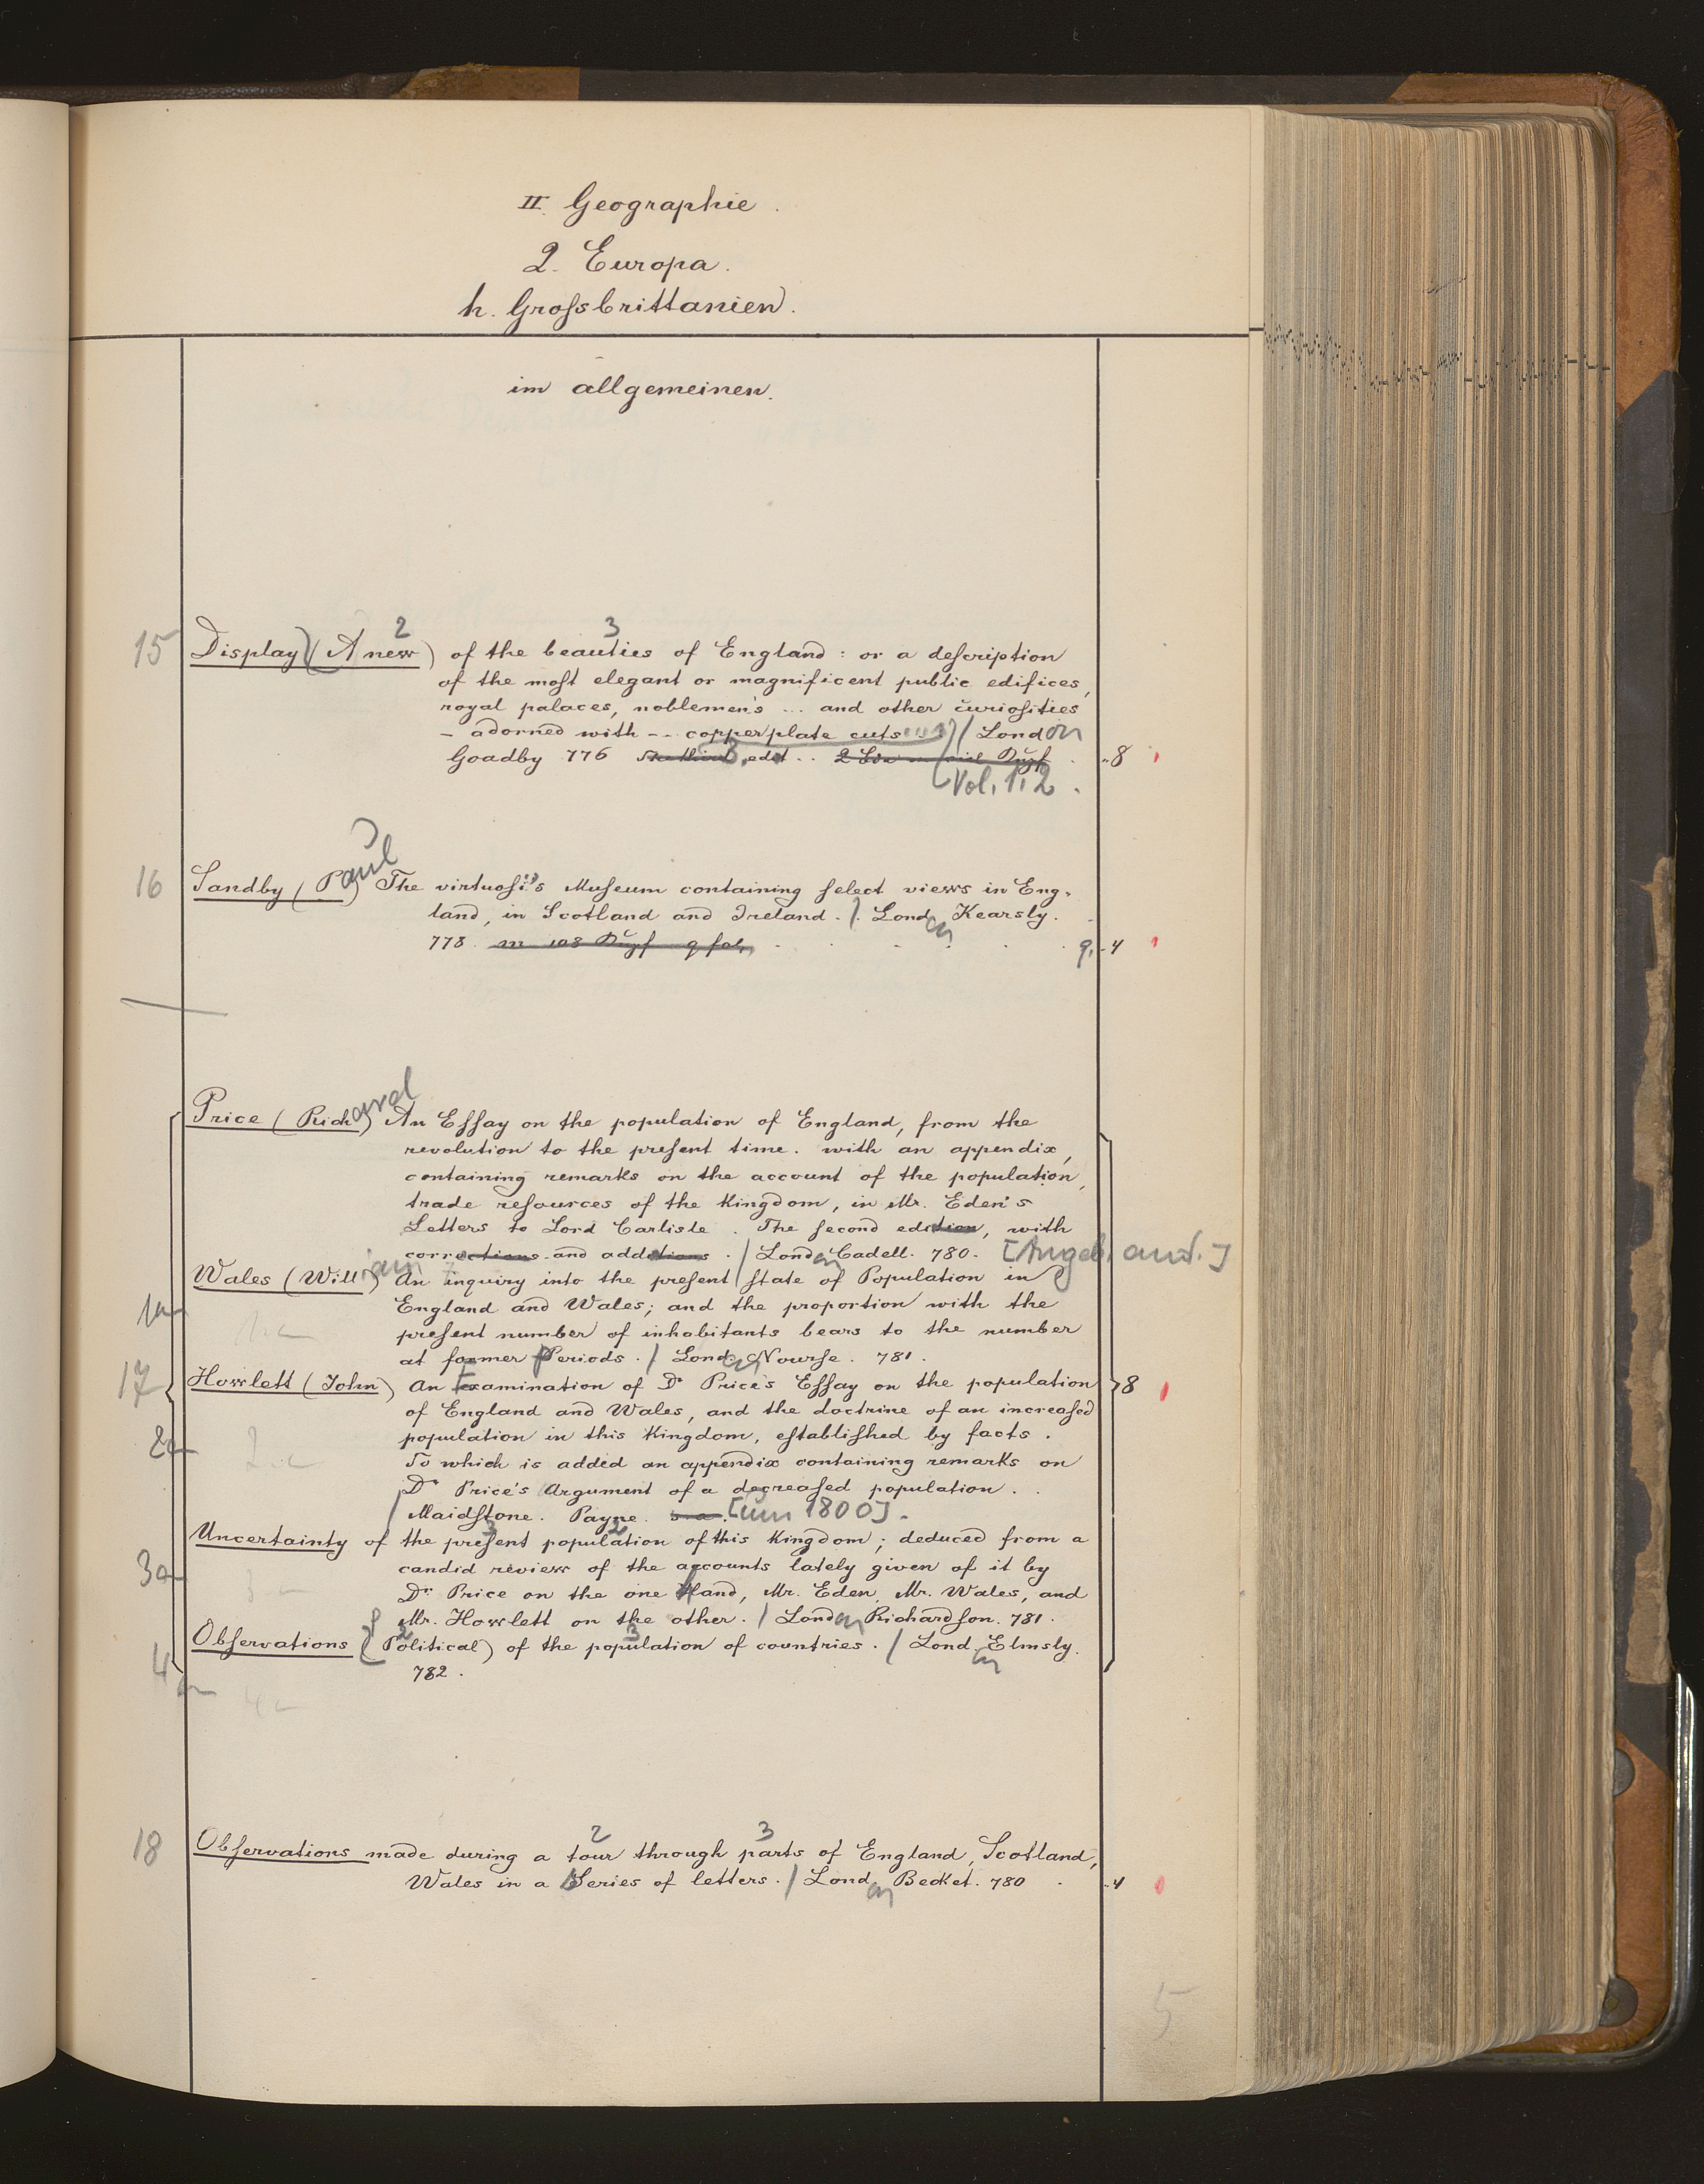 II. Geographie.
2. Europa.
h. Groſsbrittanien.
im allgemeinen.
2 3
15 Display (A new) of the beauties of England: or a deſcription
of the moſt elegant or magnificent public edifices,
royal palaces, noblemen's ... and other curioſities
– adorned with -- copperplate cuts / London
Goadby 776 3. edit..
Vol. 1. 2. ..8
16 Sandby (Paul) The virtuoſi's Muſeum containing ſelect views in Eng-
land, in Scotland and Ireland. / London Kearsly.
778. m 108 Kupf q fol. q. ..4
Price (Richard) An Eſſay on the population of England, from the
revolution to the preſent time. with an appendix,
containing remarks on the account of the population,
trade reſources of the Kingdom, in Mr. Eden's
Letters to Lord Carlisle. The ſecond edition, with
corrections and addations. / London Cadell. 780. [Angeb. and.]
Wales (William) An inquiry into the preſent ſtate of Population in
1a England and Wales; and the proportion with the
preſent number of inhabitants bears to the number
at former Periods. / London Nourſe. 781.
17 Howlett (John) An Examination of Dr Price's Eſſay on the population 8
of England and Wales, and the doctrine of an increaſed
2a population in this Kingdom, eſtabliſhed by facts.
To which is added an appendix containing remarks on
Dr Price's Argument of a decreaſed population.
/ Maidſtone. Payne. s. a. [um 1800].
3 2
Uncertainty of the preſent population of this Kingdom; deduced from a
3a candid review of the accounts lately given of it by
Dr. Price on the one Hand, Mr. Eden, Mr. Wales, and
Mr. Howlett on the other. / London Richardſon. 781.
2 3
Obſervations (Political) of the population of countries. / London Elmsly.
4a 782.
2 3
18 Obſervations made during a tour through parts of England, Scotland,
Wales in a Series of letters. / London Becket. 780 ..4
5